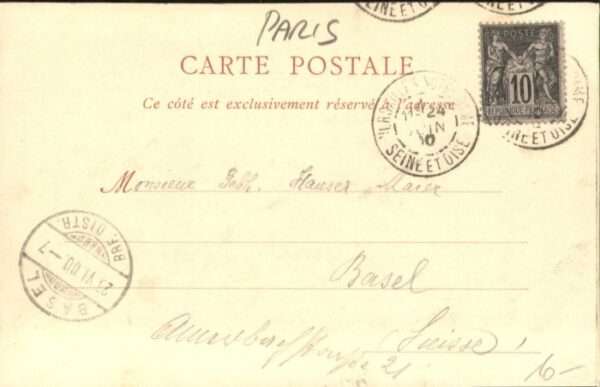 PARIS
CARTE POSTALE
Ce côté est exclusivement réservé à l'adresse
POSTE
10
RÉPUBLIQUE FRANÇAISE
24
JUIN
SEINE ET OISE
SEINE ET OISE
SEINE ET OISE
Monsieur Gebh. Hauser Maier
Basel
Suisse
21
BASEL
VI.00.-7
BRF. DISTR.
10-